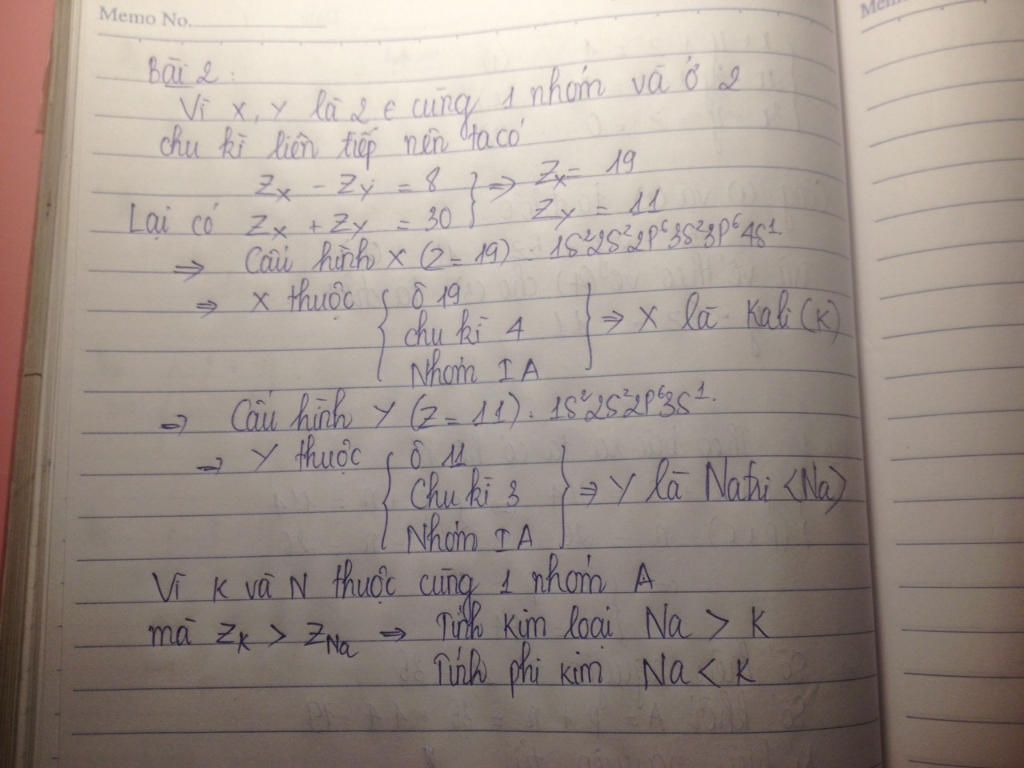 Memo No.
Bài 2:
Vì X, Y là 2 e cùng 1 nhóm và ở 2
chu kì liên tiếp nên ta có
Zx - Zy = 8 } ⇒ Zx = 19
Lại có Zx + Zy = 30 } Zy = 11
⇒ Cấu hình X (Z = 19) : 1s²2s²2p⁶3s²3p⁶4s¹.
⇒ X thuộc { ô 19
chu kì 4 } ⇒ X là Kali (K)
Nhóm IA
⇒ Cấu hình Y (Z = 11) : 1s²2s²2p⁶3s¹.
⇒ Y thuộc { Ô 11
Chu kì 3 } ⇒ Y là Natri <Na>
Nhóm IA
Vì K và N thuộc cùng 1 nhóm A
mà ZK > ZNa ⇒ Tính kim loại Na > K
Tính phi kim Na < K